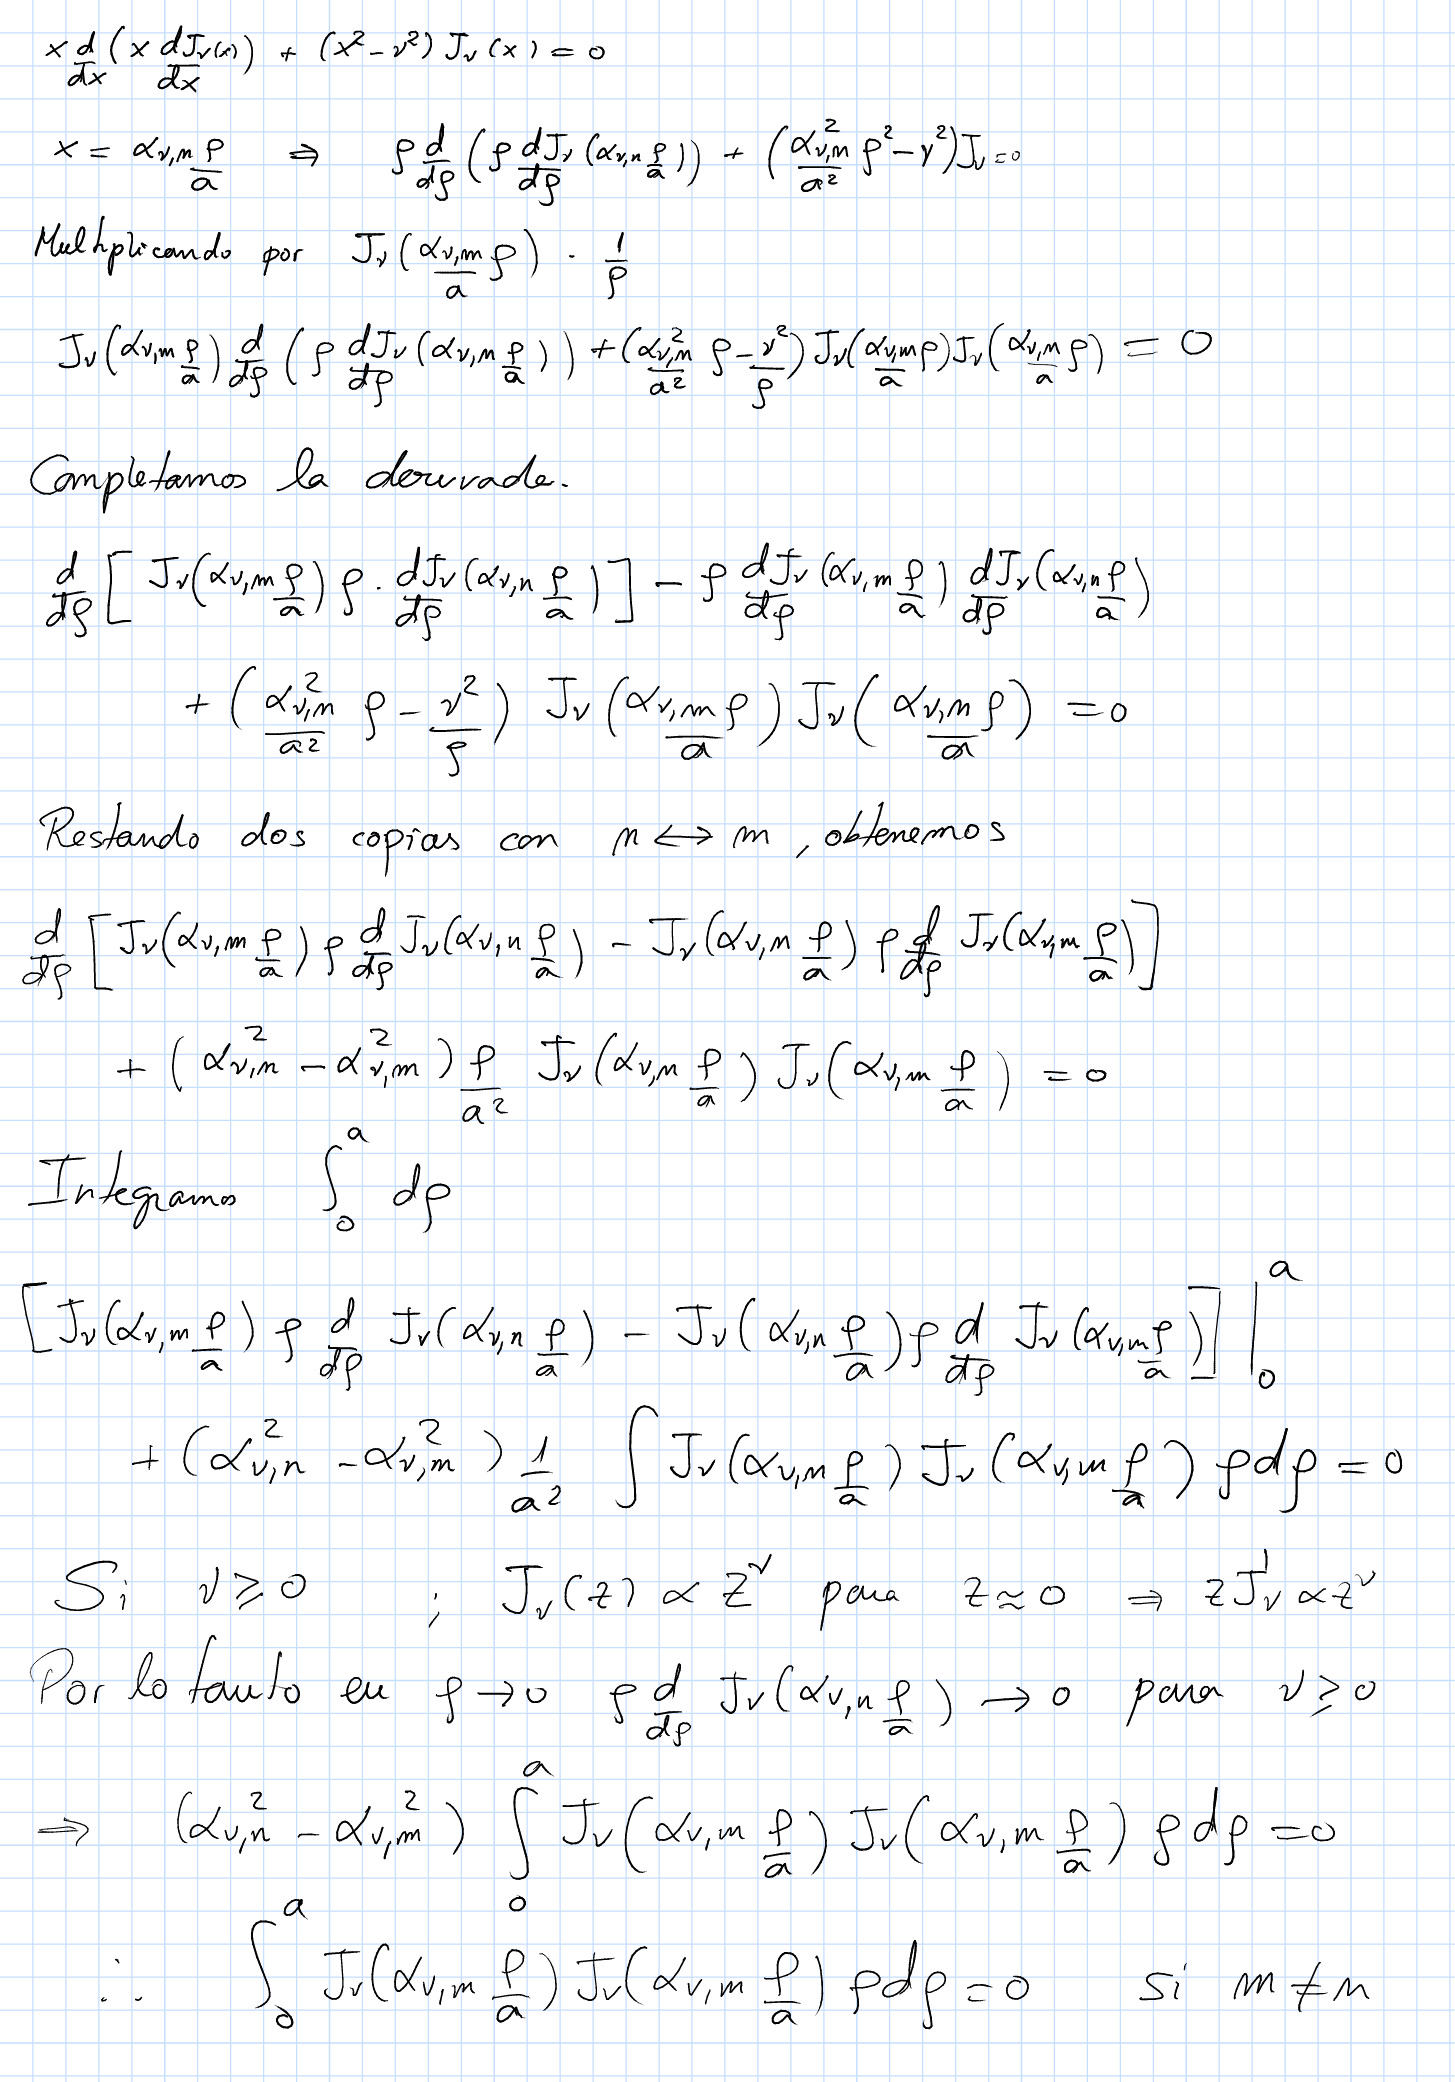 x d/dx (x dJν(x)/dx) + (x² - ν²) Jν(x) = 0
x = αν,n ρ/a ⇒ ρ d/dρ (ρ dJν/dρ (αν,n ρ/a)) + (αν,n²/a² ρ² - ν²) Jν = 0
Multiplicando por Jν(αν,m/a ρ) · 1/ρ
Jν(αν,m ρ/a) d/dρ (ρ dJν/dρ (αν,n ρ/a)) + (αν,n²/a² ρ - ν²/ρ) Jν(αν,m/a ρ) Jν(αν,n/a ρ) = 0
Completamos la derivada.
d/dρ [Jν(αν,m ρ/a) ρ · dJν/dρ (αν,n ρ/a)] - ρ dJν/dρ (αν,m ρ/a) dJν/dρ (αν,n ρ/a)
+ (αν,n²/a² ρ - ν²/ρ) Jν(αν,m ρ/a) Jν(αν,n/a ρ) = 0
Restando dos copias con n ↔ m, obtenemos
d/dρ [Jν(αν,m ρ/a) ρ d/dρ Jν(αν,n ρ/a) - Jν(αν,n ρ/a) ρ d/dρ Jν(αν,m ρ/a)]
+ (αν,n² - αν,m²) ρ/a² Jν(αν,n ρ/a) Jν(αν,m ρ/a) = 0
Integramos ∫₀ᵃ dρ
[Jν(αν,m ρ/a) ρ d/dρ Jν(αν,n ρ/a) - Jν(αν,n ρ/a) ρ d/dρ Jν(αν,m ρ/a)] |₀ᵃ
+ (αν,n² - αν,m²) 1/a² ∫ Jν(αν,n ρ/a) Jν(αν,m ρ/a) ρ dρ = 0
Si ν ≥ 0 ; Jν(z) ∝ z^ν para z ≈ 0 ⇒ z J'ν ∝ z^ν
Por lo tanto en ρ → 0 ρ d/dρ Jν(αν,n ρ/a) → 0 para ν ≥ 0
⇒ (αν,n² - αν,m²) ∫₀ᵃ Jν(αν,m ρ/a) Jν(αν,n ρ/a) ρ dρ = 0
∴ ∫₀ᵃ Jν(αν,m ρ/a) Jν(αν,n ρ/a) ρ dρ = 0 si m ≠ n